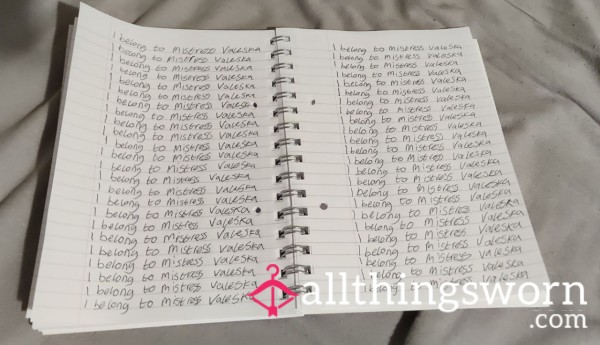 I belong to Mistress Valeska
I belong to Mistress Valeska
I belong to Mistress Valeska
I belong to Mistress Valeska
I belong to Mistress Valeska
I belong to Mistress Valeska
I belong to Mistress Valeska
I belong to Mistress Valeska
I belong to Mistress Valeska
I belong to Mistress Valeska
I belong to Mistress Valeska
I belong to Mistress Valeska
I belong to Mistress Valeska
I belong to Mistress Valeska
I belong to Mistress Valeska
I belong to Mistress Valeska
I belong to Mistress Valeska
I belong to Mistress Valeska
I belong to Mistress Valeska
I belong to Mistress Valeska
I belong to Mistress Valeska
I belong to Mistress Valeska
I belong to Mistress Valeska
I belong to Mistress Valeska
I belong to Mistress Valeska
I belong to Mistress Valeska
I belong to Mistress Valeska
I belong to Mistress Valeska
I belong to Mistress Valeska
I belong to Mistress Valeska
I belong to Mistress Valeska
I belong to Mistress Valeska
I belong to Mistress Valeska
I belong to Mistress Valeska
I belong to Mistress Valeska
I belong to Mistress Valeska
I belong to Mistress Valeska
I belong to Mistress Valeska
I belong to Mistress Valeska
I belong to Mistress Valeska
I belong to Mistress Valeska
I belong to Mistress Valeska
I belong to Mistress Valeska
I belong to Mistress Valeska
allthingsworn
.com